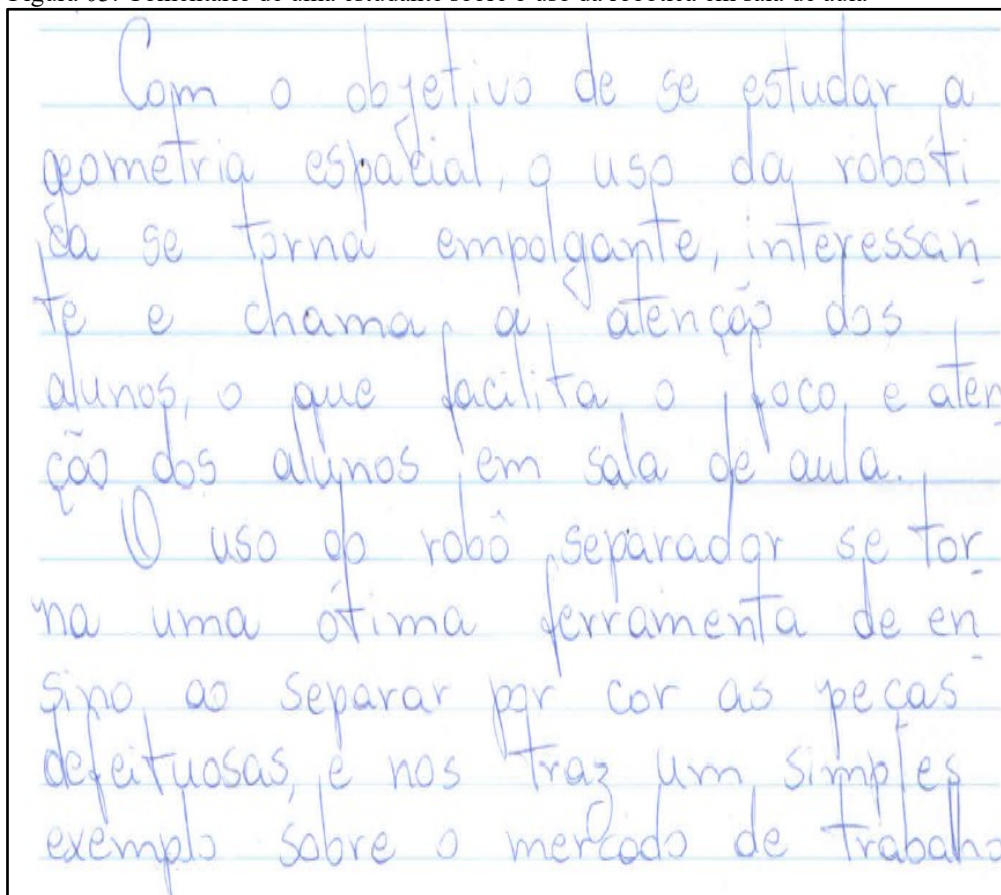 Com o objetivo de se estudar a
geometria espacial, o uso da roboti
ca se torna empolgante, interessan
te e chama a atenção dos
alunos, o que facilita o foco e aten
ção dos alunos em sala de aula.
O uso do robô separador se tor
na uma ótima ferramenta de en
sino ao separar por cor as peças
defeituosas, e nos traz um simples
exemplo sobre o mercado de trabalho